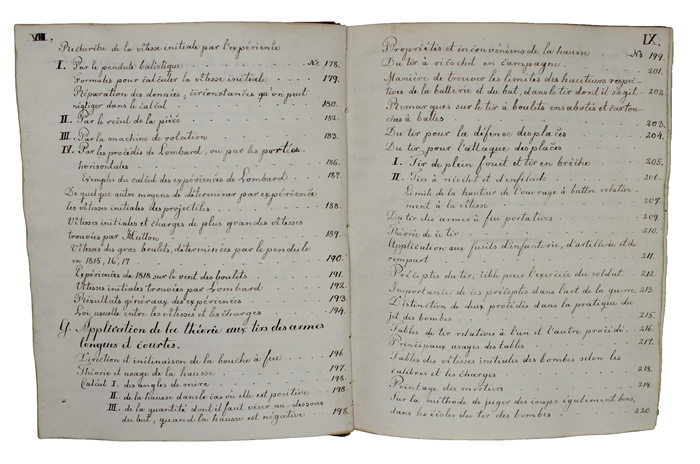 VIII.
Recherche de la vitesse initiale par l'expérience
I. Par le pendule balistique Nos 178.
Formules pour calculer la vitesse initiale 179.
Préparation des données; circonstances qu'on peut
négliger dans le calcul 180.
II. Par le recul de la pièce 182.
III. Par la machine de rotation 183.
IV. Par les procédés de Lombard, ou par les portées
horisontales 186.
Exemples du calcul des expériences de Lombard 187.
De quelque autre moyens de déterminer par expérience
les vitesses initiales des projectiles 188.
Vitesses initiales et charges de plus grandes vitesses
trouvées par Hutton 189.
Vitesses des gros boulets, déterminées par le pendule
en 1815, 16, 17 190.
Expériences de 1818 sur le vent des boulets 191.
Vitesses initiales trouvées par Lombard 192.
Résultats généraux des expériences 193.
Loi usuelle entre les vitesses et les charges 194.
G. Application de la théorie aux tirs des armes
longues et courtes.
Direction et inclinaison de la bouche à feu 196
Théorie et usage de la hausse 197.
Calcul I. des angles de mire 198.
II. de la hausse dans le cas où elle est positive 198.
III. de la quantité dont il faut viser au-dessous
du but, quand la hausse est négative 198.
IX.
Propriétés et inconvéniens de la hausse No 199.
Du tir à ricochet en campagne 201.
Manière de trouver les limites des hauteurs respec-
tives de la batterie et du but, dans le tir dont il s'agit 202
Remarques sur le tir à boulets ensabotés et cartou-
ches à balles 203.
Du tir pour la défense des places 204.
Du tir pour l'attaque des places
I. Tir de plein fouet et tir en brèche 205.
II. Tir à ricochet et d'enfilade 206.
Limite de la hauteur de l'ouvrage à battre relative-
ment à la vitesse 207.
Du tir des armes à feu portatives 209.
Théorie de ce tir 210.
Application aux fusils d'infanterie, d'artillerie et de
rempart 211.
Préceptes du tir, cible pour l'exercice du soldat 212.
Importance de ces préceptes dans l'art de la guerre 213.
Distinction de deux procédés dans la pratique du
jet des bombes 215.
Tables de tir relatives à l'un et l'autre procédé 216.
Principaux usages des tables 217.
Tables des vitesses initiales des bombes selon les
calibres et les charges 218.
Pointage des mortiers 219.
Sur la méthode de juger des coups également bons,
dans les écoles du tir des bombes 220.